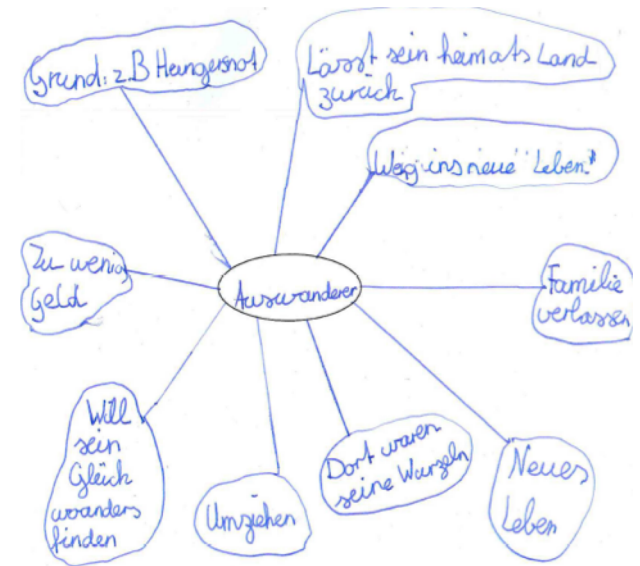 Grund: z.B Hungersnot
Lässt sein heimats Land
zurück
Weg ins neue "Leben"
Zu wenig
Geld
Auswanderer
Familie
verlassen
Will
sein
Glück
woanders
finden
Umziehen
Dort waren
seine Wurzeln
Neues
Leben